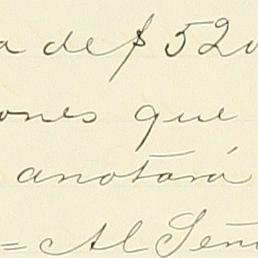 a de $ 520
ones que
anotará
= Al Señ